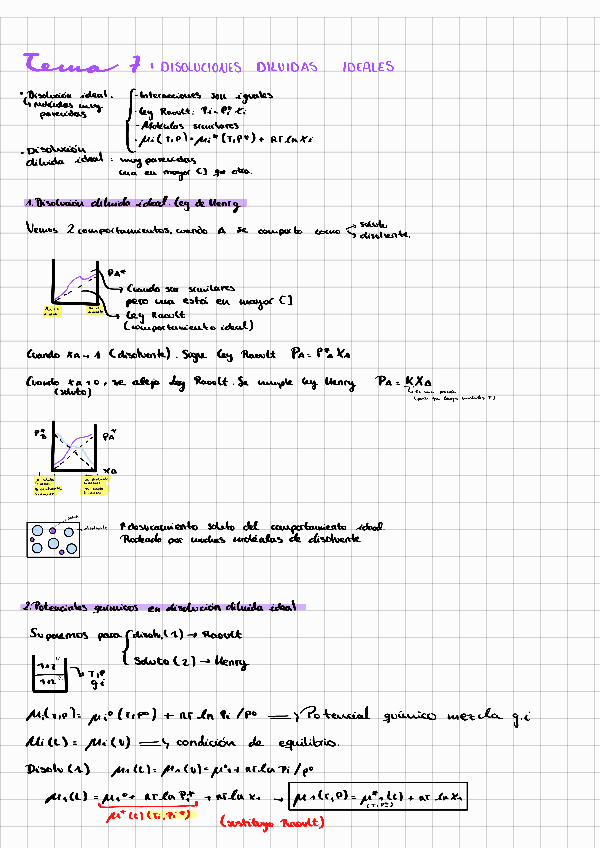 Tema 7: DISOLUCIONES DILUIDAS IDEALES
• Disolución ideal. - Interacciones son iguales
↳ moléculas muy parecidas - Ley Raoult: Pi = Pi* xi
- Moléculas similares
- μi (T,P) = μi* (T,P*) + RT ln xi
- Disolución diluida ideal = muy parecidas
una en mayor C] que otra.
1. Disolución diluida ideal. Ley de Henry
Vemos 2 comportamientos, cuando A se comporta como soluto
disolvente.
PA*
Cuando son similares
pero una está en mayor C]
Ley Raoult
(comportamiento ideal)
Cuando xA → 1 (disolvente). Sigue Ley Raoult PA = P*A XA
Cuando xA → 0, se aleja Ley Raoult. Se cumple Ley Henry PA = K XA
(soluto)
PB* PA*
XA
soluto
disolvente
↑ desviamiento soluto del comportamiento ideal.
Rodeado por muchas moléculas de disolvente
2. Potenciales químicos en disolución diluida ideal
Suponemos para disolv. (1) → Raoult
Soluto (2) → Henry
1+2
1+2
T,P
g.i
μi (T,P) = μi° (T,P°) + RT ln Pi / P° ⟹ Potencial químico mezcla g.i
μi (L) = μi (V) ⟹ condición de equilibrio.
Disolv (1) μ1 (L) = μ1 (V) = μ° + RT ln Pi / P°
μ1 (L) = μ1° + RT ln P1* + RT ln X1 → μ1 (T,P) = μ1* (L) + RT ln X1
(T,P*)
μ* (L) (T, Pi*)
(sustituyo Raoult)